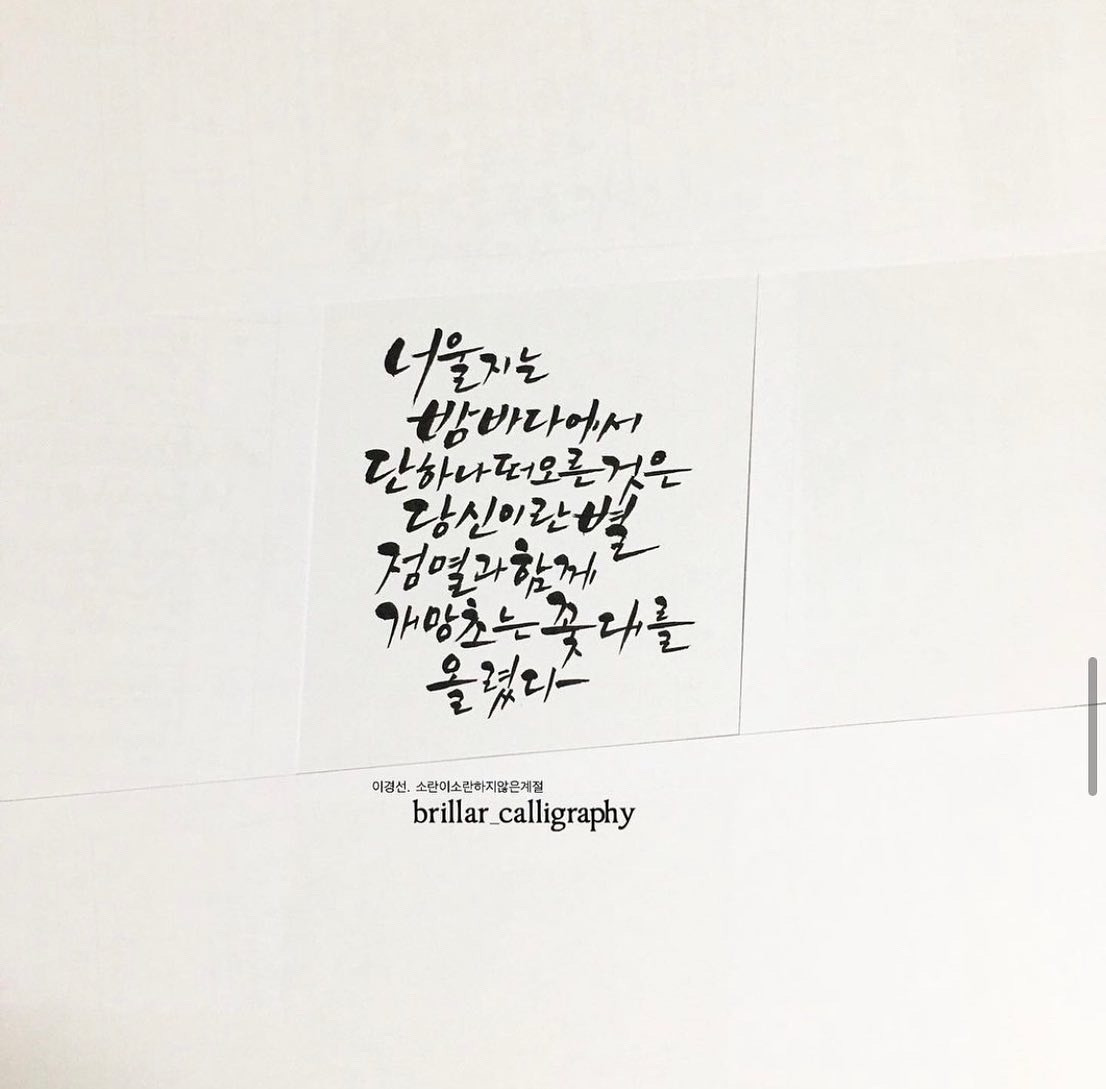 너울지는
밤바다에서
단하나떠오른것은
당신이란별
점멸과함께
개망초는꽃대를
올렸다
이경선. 소란이소란하지않은계절
brillar_calligraphy